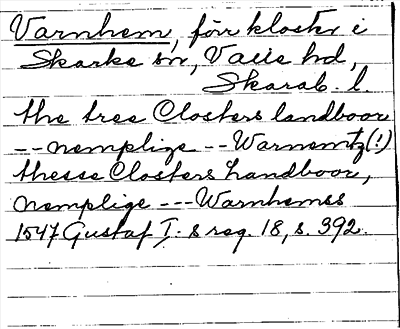 Varnhem, förr kloster i
Skarke sn, Valle hd,
Skarab. l.
the tree Closters landboor
-- nemplige -- Warnemtz(!)
thesse Closters Landboor,
nemplige --- Warnhemss
1547 Gustaf I:s reg. 18, s. 392.